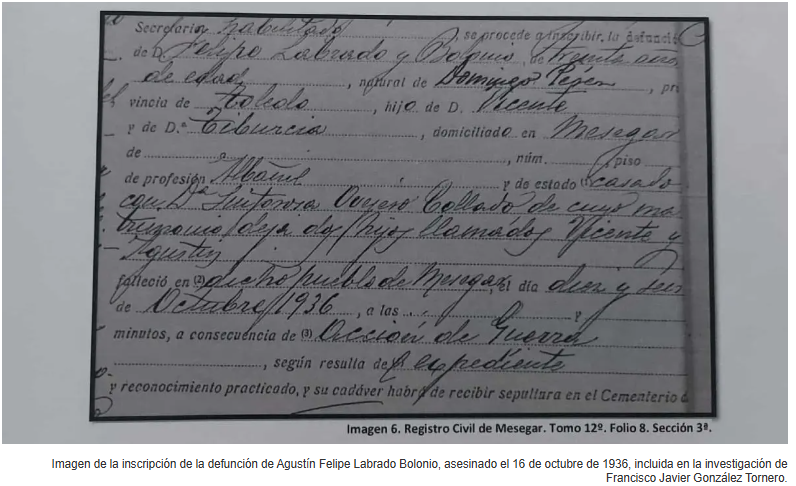 Secretario habilitado, se procede a inscribir la defunció
de D. Felipe Labrado y Bolonio, de treinta años
de edad, natural de Domingo Perez, pro
vincia de Toledo, hijo de D. Vicente
y de D.ª Tiburcia, domiciliado en Mesegar
de, núm. piso
de profesión Albañil y de estado (1) casado
con Dª Sinforosa Collado de cuyo ma
trimonio deja dos hijos llamados Vicente y
Agustin
falleció en (2) dicho pueblo de Mesegar, el día diez y seis
de Octubre 1936, a las y
minutos, a consecuencia de (3) Acción de Guerra
, según resulta de expediente
y reconocimiento practicado, y su cadáver habrá de recibir sepultura en el Cementerio d
Imagen 6. Registro Civil de Mesegar. Tomo 12º. Folio 8. Sección 3ª.
Imagen de la inscripción de la defunción de Agustín Felipe Labrado Bolonio, asesinado el 16 de octubre de 1936, incluida en la investigación de
Francisco Javier González Tornero.